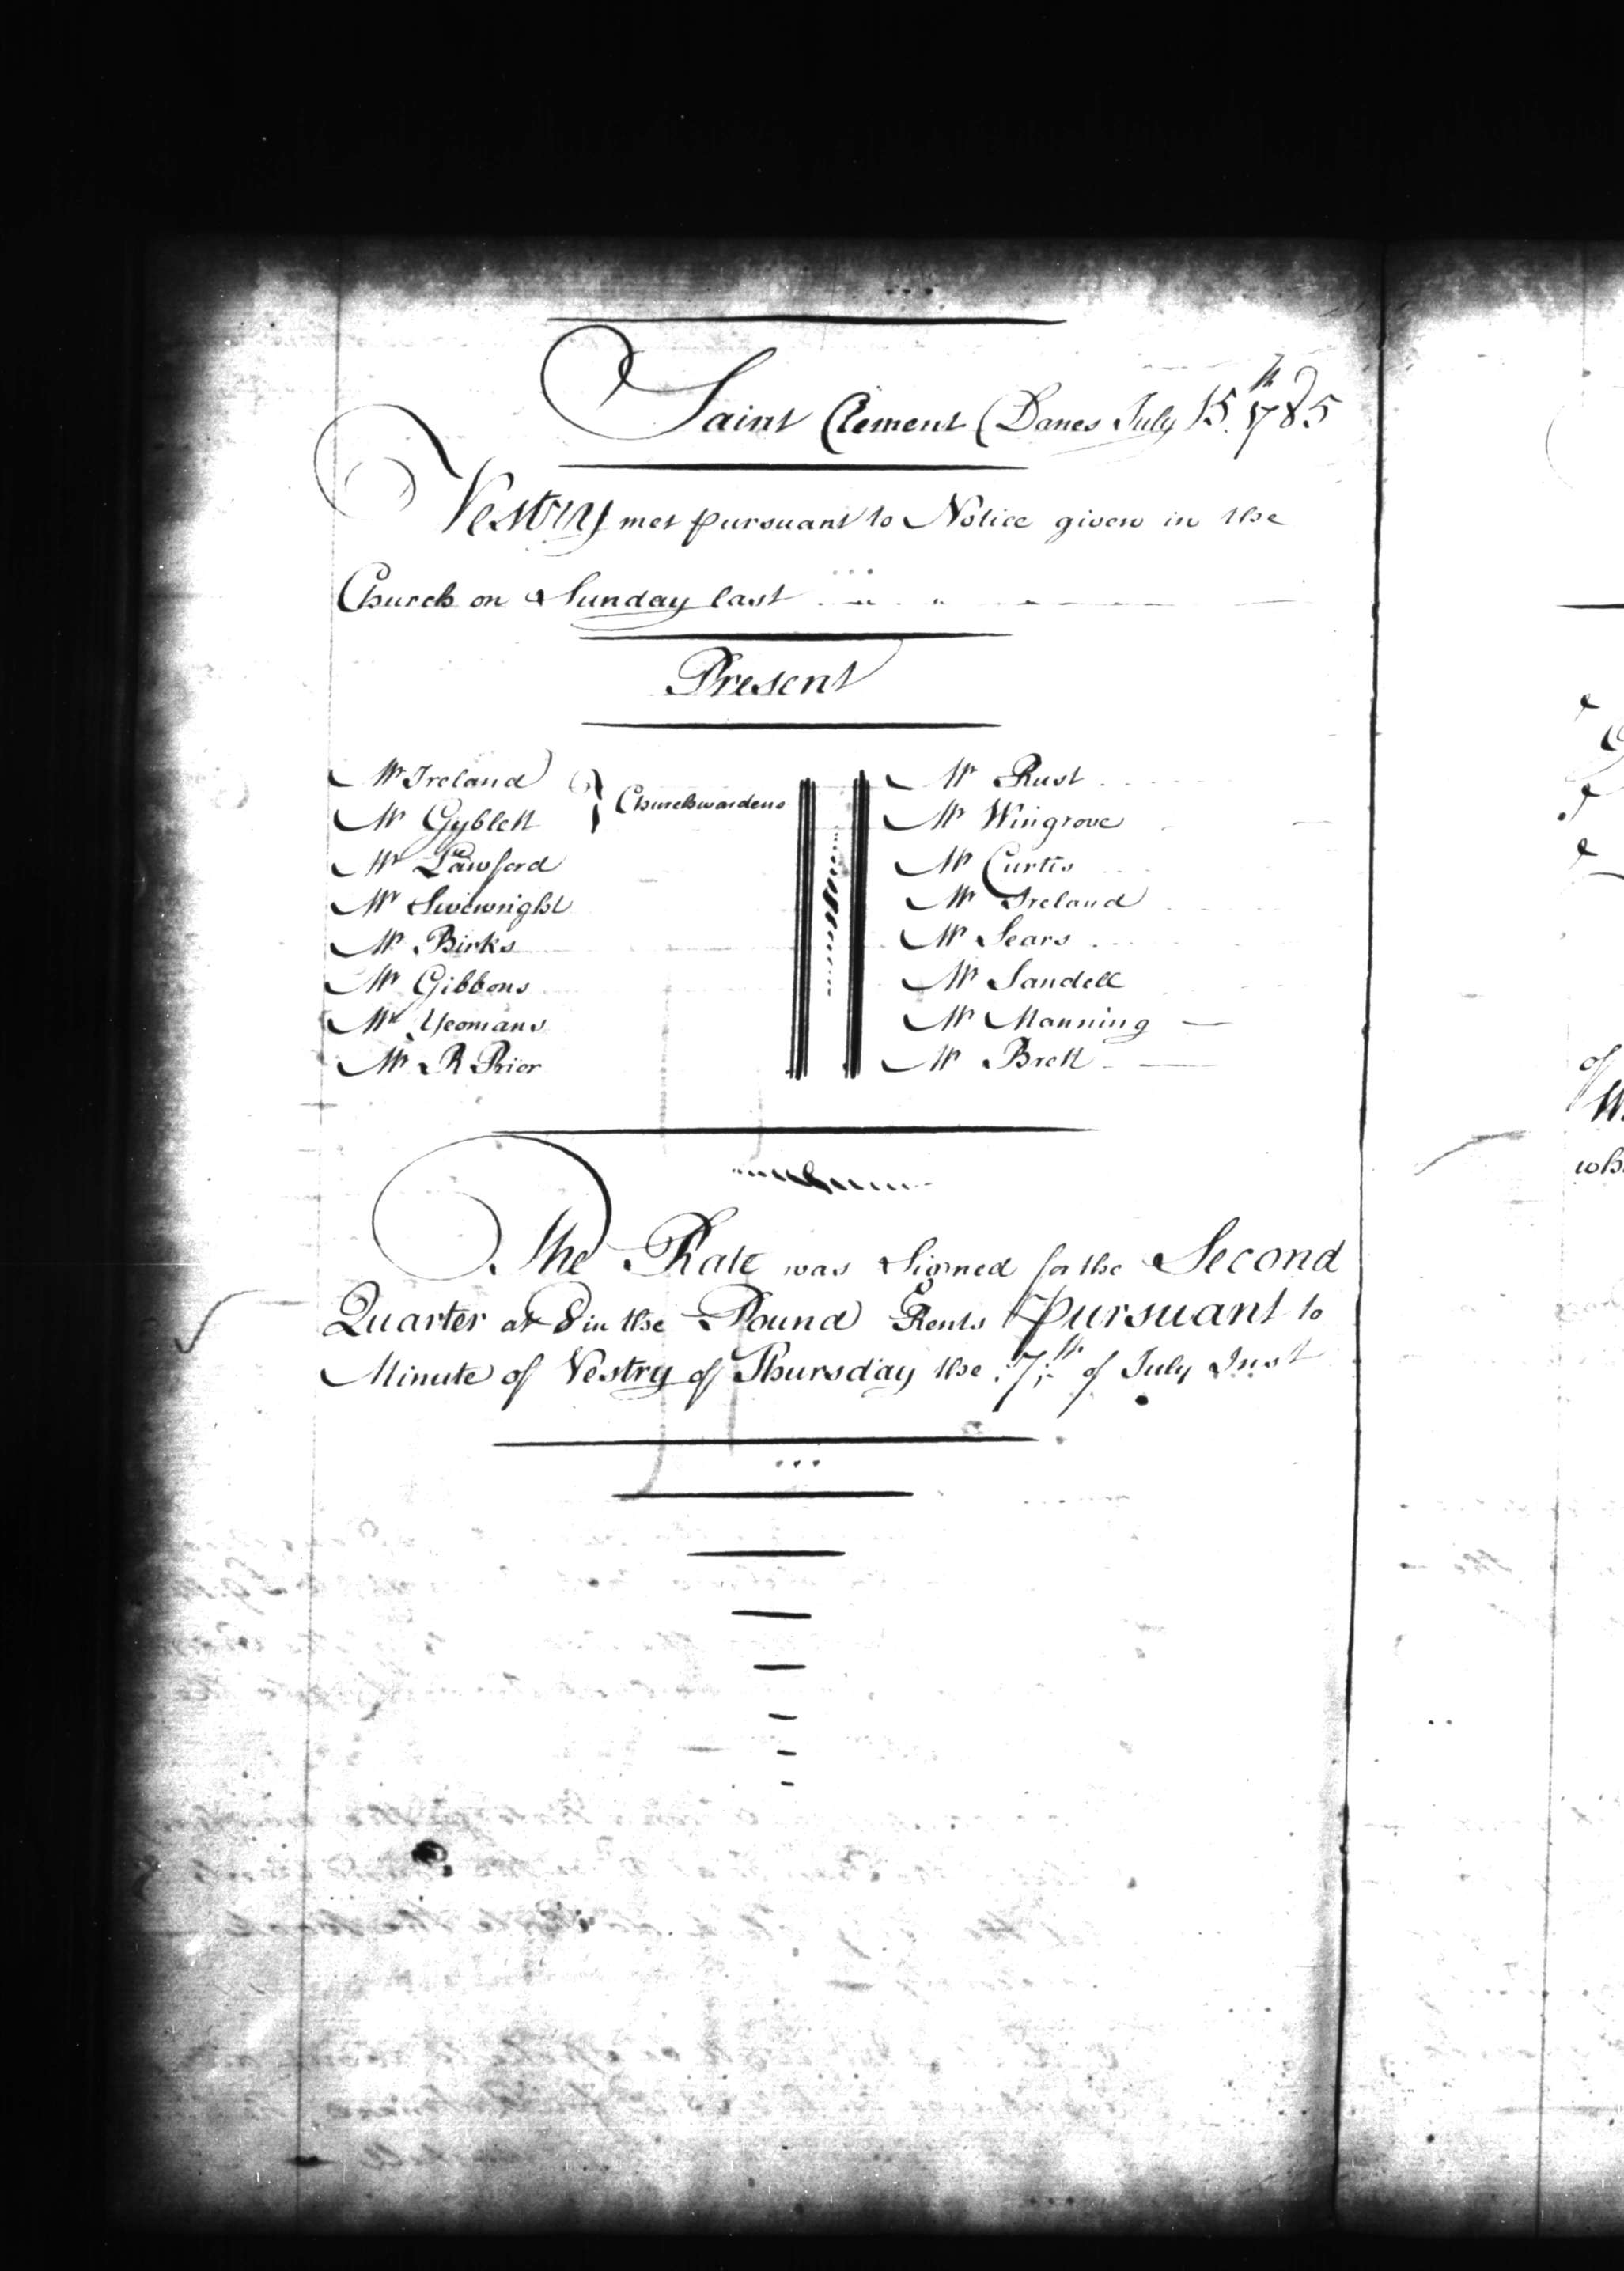 Saint Clement Danes July 15th 1785
Vestry met pursuant to Notice given in the
Church on Sunday last
Present
Mr Ireland
Mr Gyblett
Churchwardens
Mr Lawford
Mr Sivewright
Mr Birks
Mr Gibbons
Mr Yeomans
Mr R Prior
Mr Rust
Mr Wingrove
Mr Curtis
Mr Ireland
Mr Sears
Mr Sandell
Mr Manning
Mr Brett
The Rate was Signed for the Second
Quarter at 8 in the Pound Rents Pursuant to
Minute of Vestry of Thursday the 7th of July Inst
of